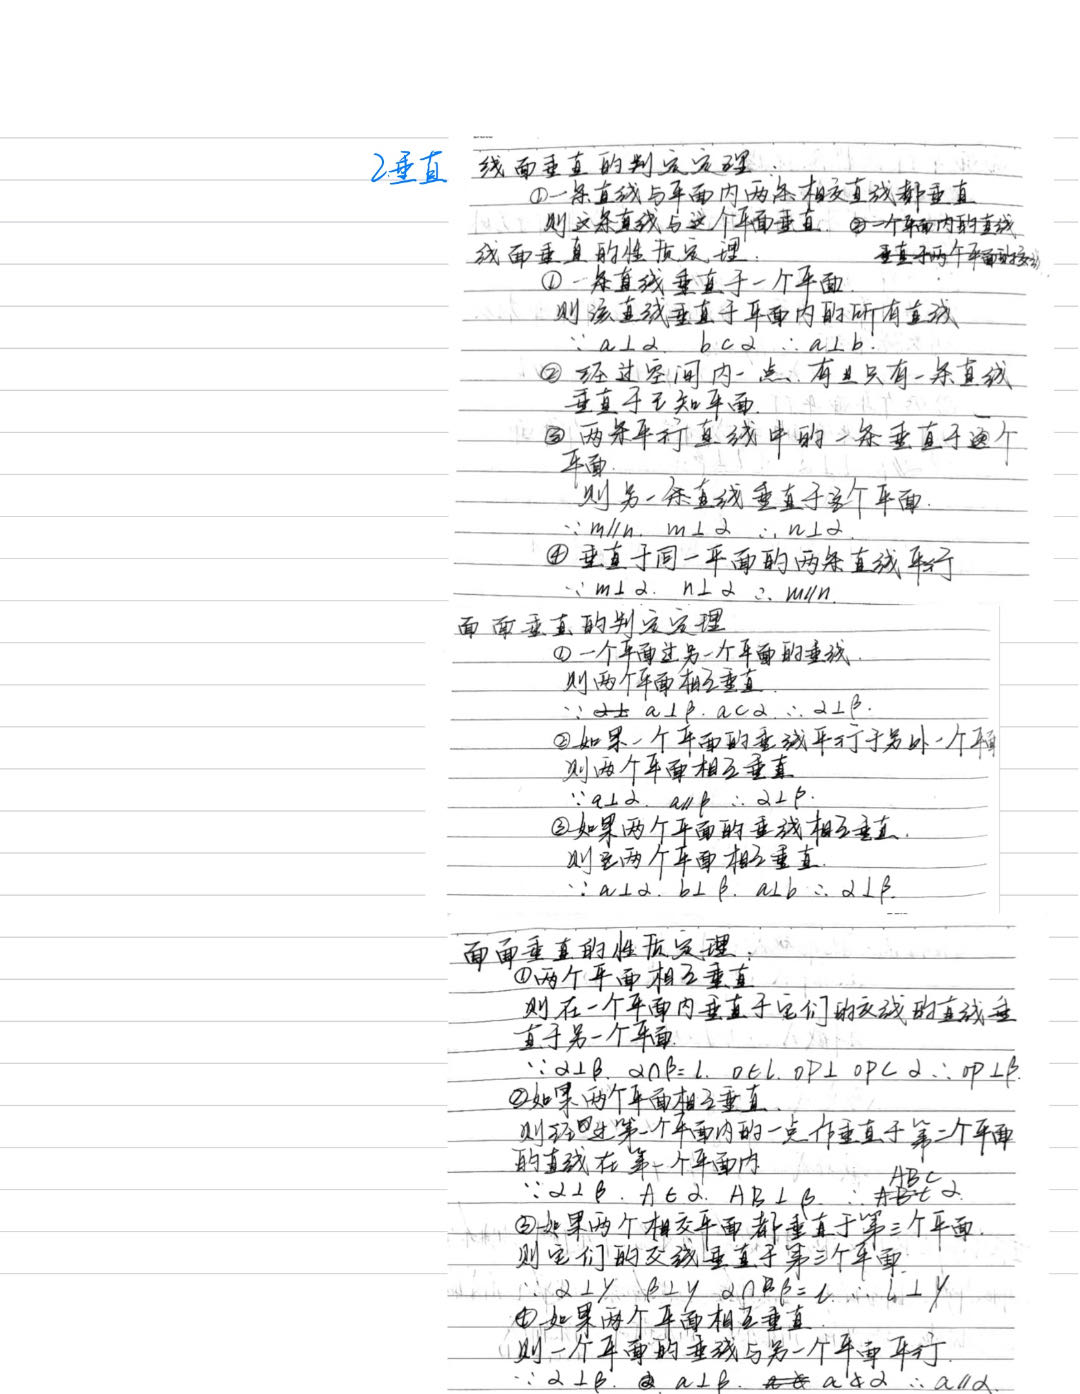 2.垂直
线面垂直的判定定理.
①一条直线与平面内两条相交直线都垂直
则这条直线与这个平面垂直. ②一个平面内的直线
垂直于两个平面的交线
线面垂直的性质定理.
①一条直线垂直于一个平面.
则该直线垂直于平面内的所有直线
∵a⊥α. b⊂α ∴a⊥b.
② 经过空间内一点、有且只有一条直线
垂直于已知平面.
③ 两条平行直线中的一条垂直于这个
平面.
则另一条直线垂直于这个平面.
∵m//n. m⊥α ∴n⊥α.
④ 垂直于同一平面的两条直线平行
∵m⊥α. n⊥α ∴m//n.
面面垂直的判定定理
① 一个平面过另一个平面的垂线.
则两个平面相互垂直.
∵ a⊥β. a⊂α. ∴α⊥β.
②如果一个平面的垂线平行于另外一个平面
则两个平面相互垂直
∵a⊥α. a//β ∴α⊥β.
③如果两个平面的垂线相互垂直.
则这两个平面相互垂直.
∵a⊥α. b⊥β. a⊥b ∴α⊥β.
面面垂直的性质定理.
①两个平面相互垂直
则在一个平面内垂直于它们的交线的直线垂
直于另一个平面.
∵α⊥β. α∩β=l. O∈l. OP⊥ OP⊂α ∴OP⊥β.
②如果两个平面相互垂直.
则经过第一个平面内的一点作垂直于第二个平面
的直线在第一个平面内
ABC
∵α⊥β. A∈α. AB⊥β. ∴AB⊂α.
③如果两个相交平面都垂直于第三个平面.
则它们的交线垂直于第三个平面.
∵α⊥γ β⊥γ α∩β=l. ∴l⊥γ
④如果两个平面相互垂直.
则一个平面的垂线与另一个平面平行.
∵α⊥β. a⊥β. a⊄α ∴a//α.